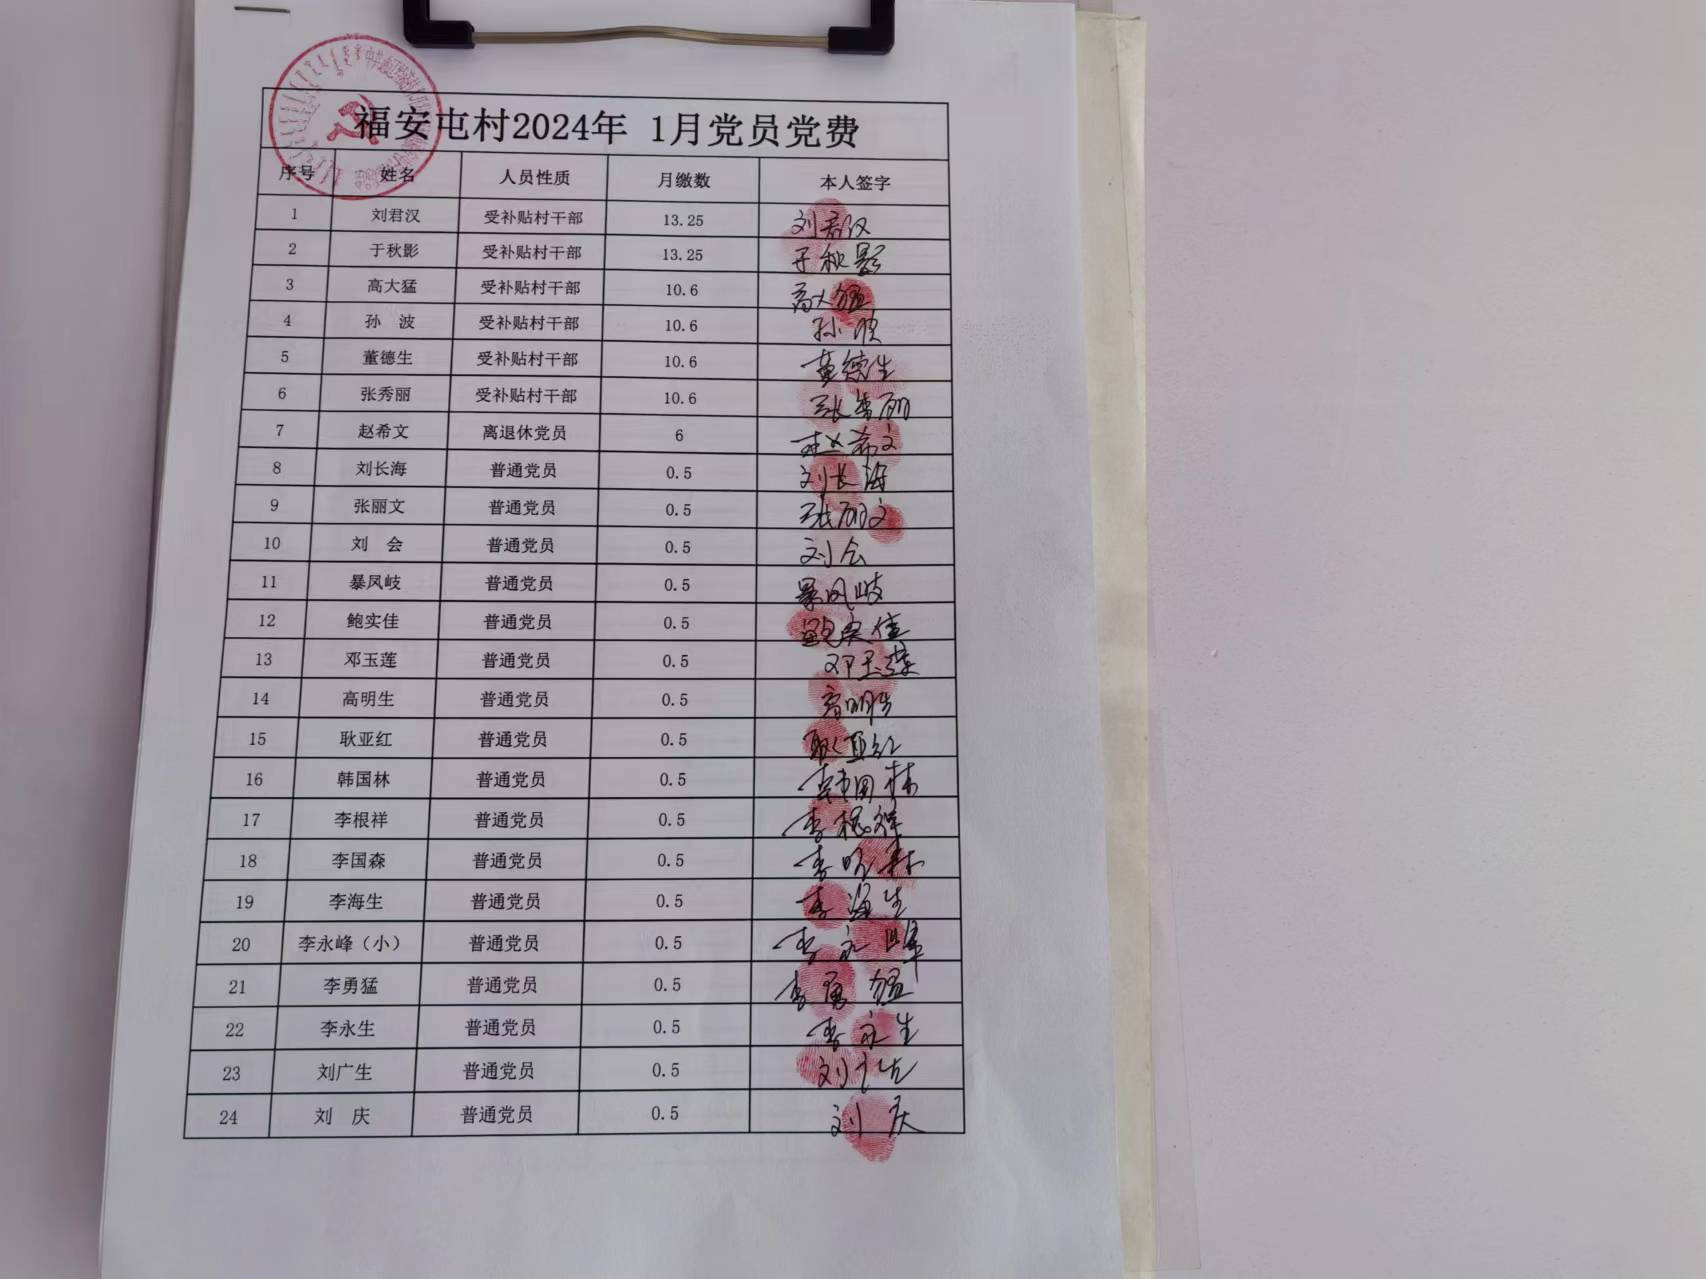 福安屯村2024年 1月党员党费
序号 姓名 人员性质 月缴数 本人签字
1 刘君汉 受补贴村干部 13.25 刘君汉
2 于秋影 受补贴村干部 13.25 于秋影
3 高大猛 受补贴村干部 10.6 高大猛
4 孙 波 受补贴村干部 10.6 孙波
5 董德生 受补贴村干部 10.6 董德生
6 张秀丽 受补贴村干部 10.6 张秀丽
7 赵希文 离退休党员 6 赵希文
8 刘长海 普通党员 0.5 刘长海
9 张丽文 普通党员 0.5 张丽文
10 刘 会 普通党员 0.5 刘会
11 暴凤岐 普通党员 0.5 暴凤岐
12 鲍实佳 普通党员 0.5 鲍实佳
13 邓玉莲 普通党员 0.5 邓玉莲
14 高明生 普通党员 0.5 高明生
15 耿亚红 普通党员 0.5 耿亚红
16 韩国林 普通党员 0.5 韩国林
17 李根祥 普通党员 0.5 李根祥
18 李国森 普通党员 0.5 李国森
19 李海生 普通党员 0.5 李海生
20 李永峰（小） 普通党员 0.5 李永峰
21 李勇猛 普通党员 0.5 李勇猛
22 李永生 普通党员 0.5 李永生
23 刘广生 普通党员 0.5 刘广生
24 刘 庆 普通党员 0.5 刘庆